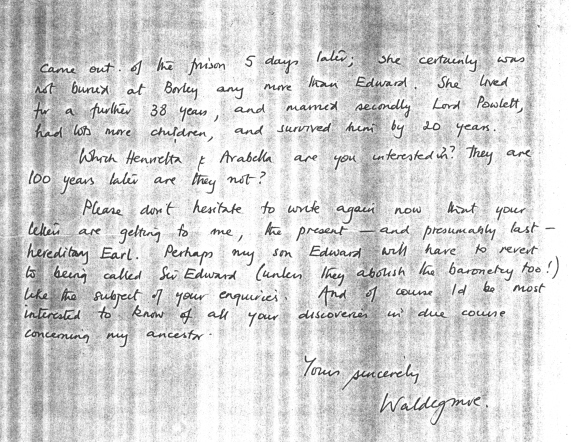 came out of the prison 5 days later; she certainly was
not buried at Borley any more than Edward. She lived
for a further 38 years, and married secondly Lord Powlett,
had lots more children, and survived him by 20 years.
Which Henrietta & Arabella are you interested in? They are
100 years later are they not?
Please don't hesitate to write again now that your
letters are getting to me, the present — and presumably last —
hereditary Earl. Perhaps my son Edward will have to revert
to being called Sir Edward (unless they abolish the baronetcy too!)
like the subject of your enquiries. And of course I'd be most
interested to know of all your discoveries in due course
concerning my ancestor.
Yours sincerely
Waldegrave.